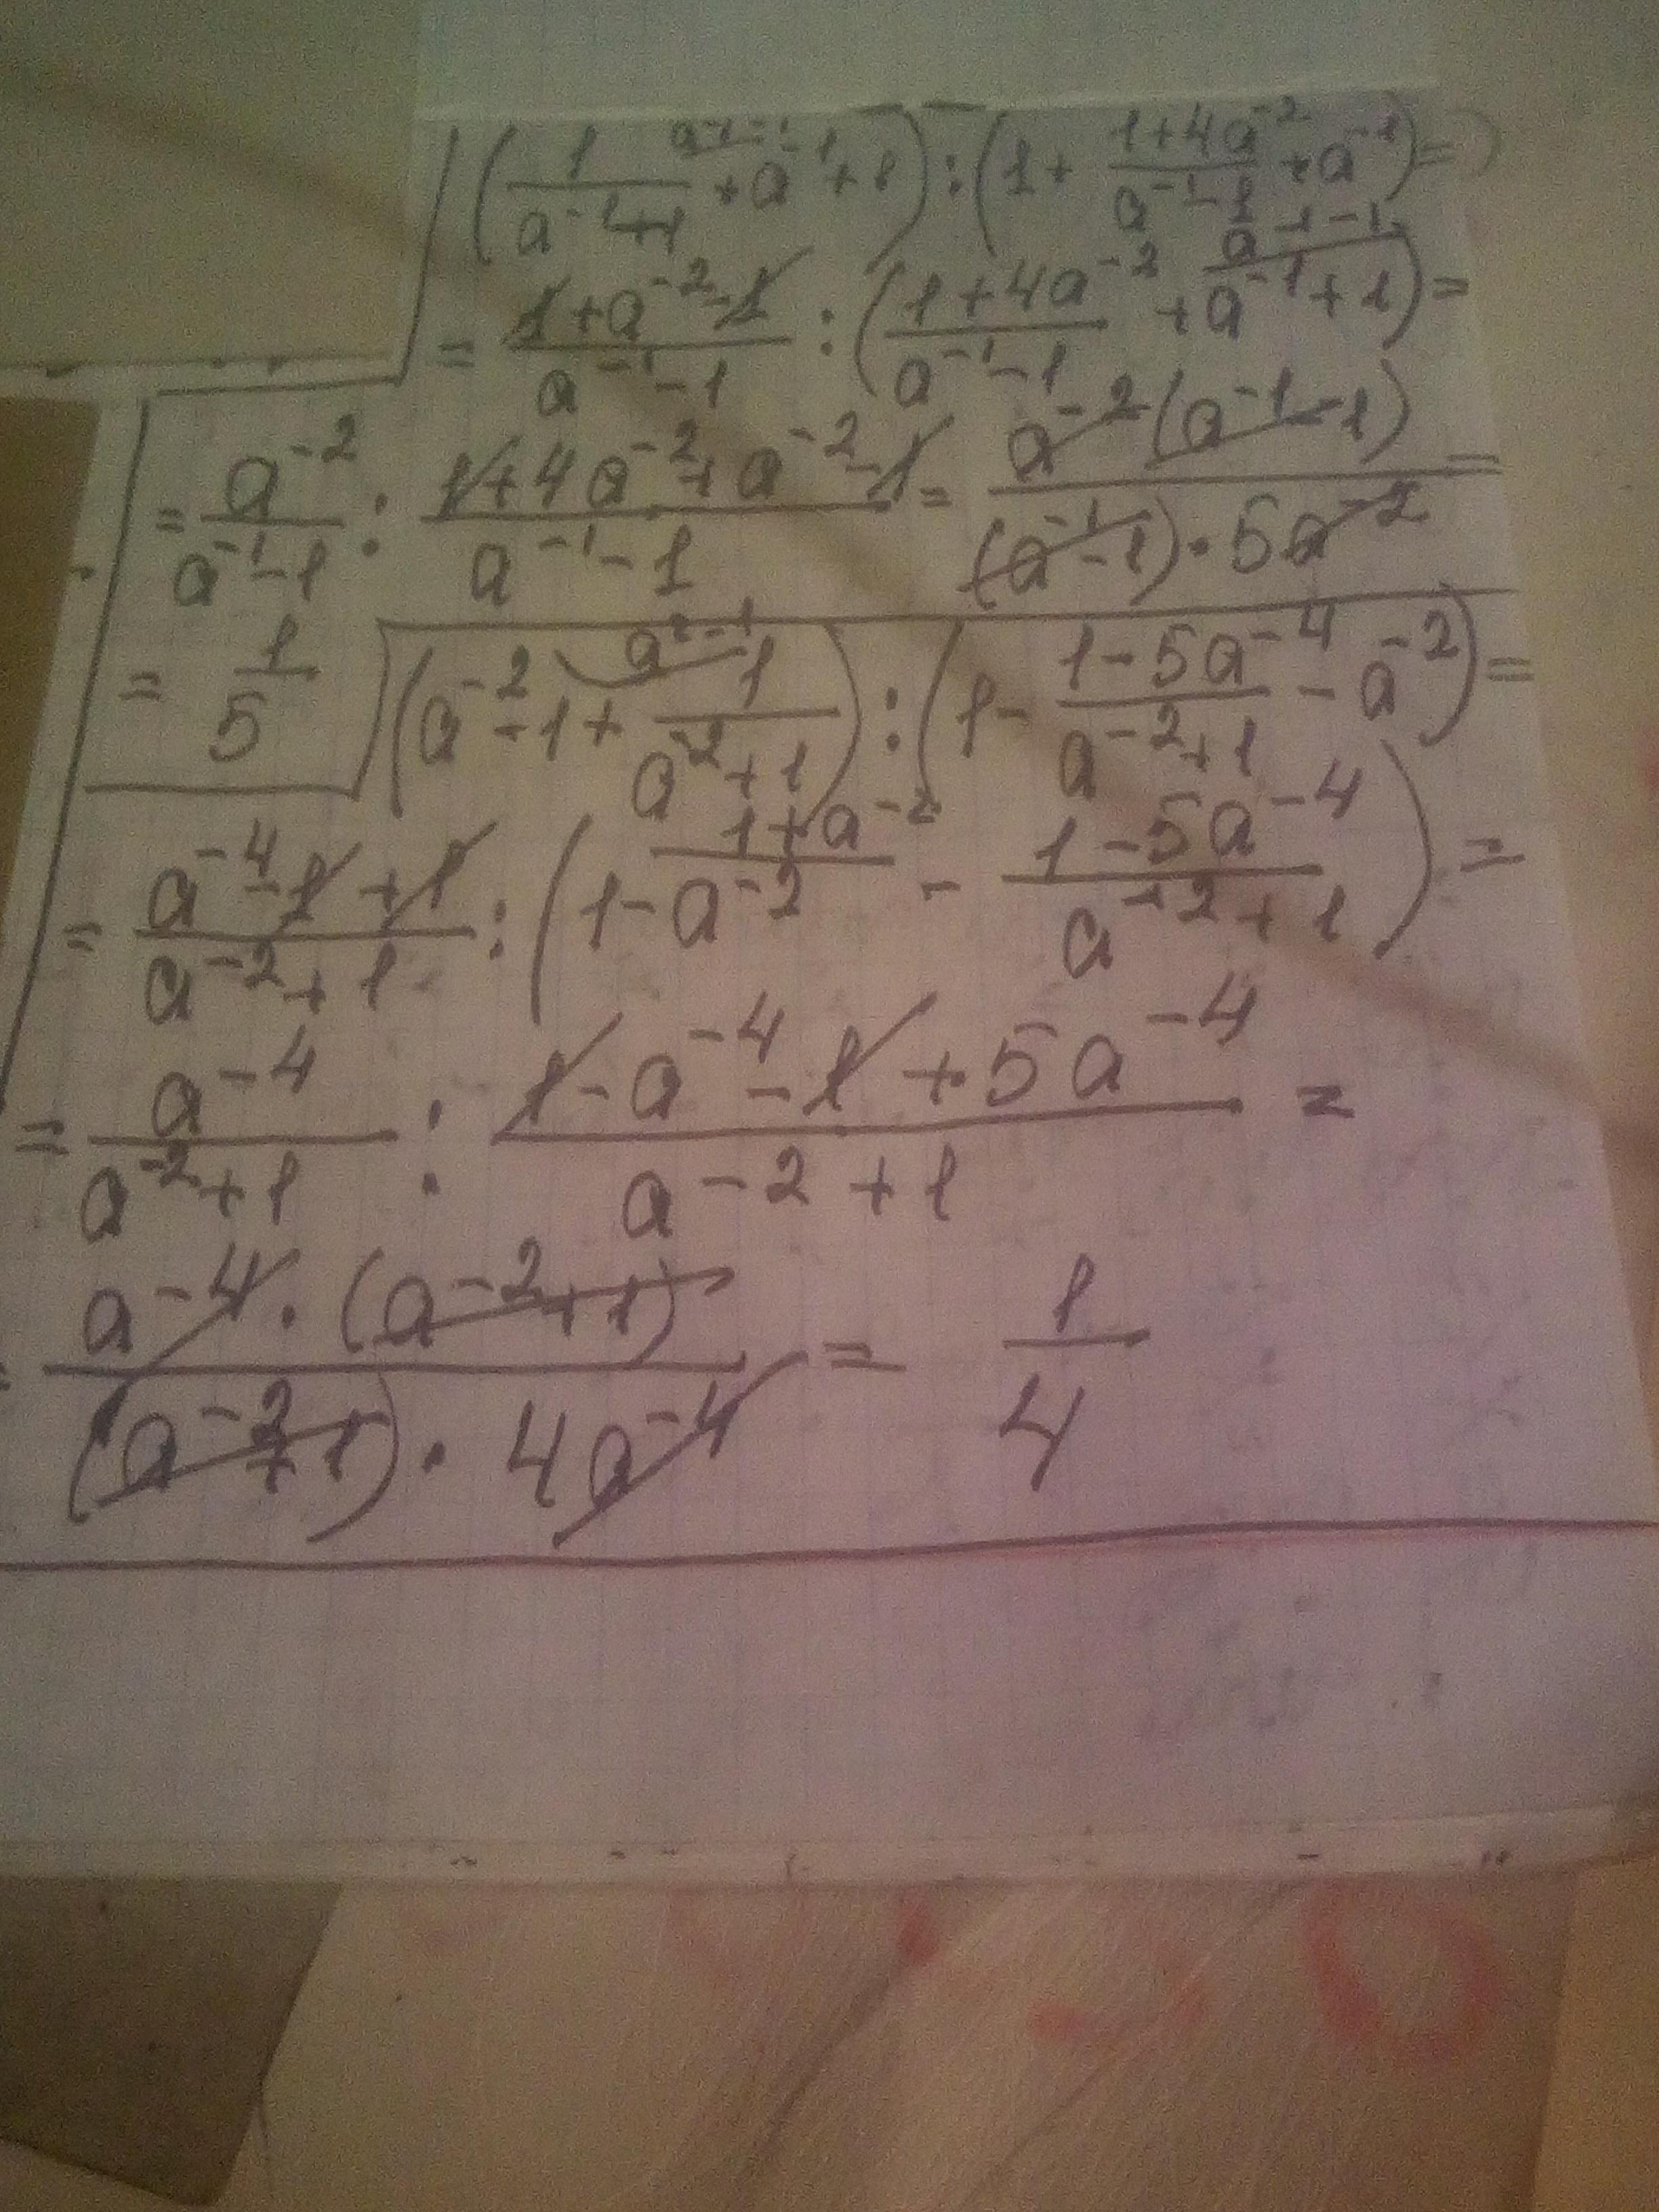 (1/(a⁻¹+1) + a⁻¹+1) : (1 + (1+4a⁻²)/(a⁻¹-1) + a⁻¹) =
= (1+a⁻²-1)/(a⁻¹-1) : ((1+4a⁻²)/(a⁻¹-1) + a⁻¹+1) =
= a⁻²/(a⁻¹-1) : (1+4a⁻²+a⁻²-1)/(a⁻¹-1) = a⁻²(a⁻¹-1)/((a⁻¹-1)·5a⁻²) =
= 1/5
(a⁻²-1+1/(a⁻²+1)) : (1-(1-5a⁻⁴)/(a⁻²+1)-a⁻²) =
= (a⁻⁴-1+1)/(a⁻²+1) : (1-a⁻² - (1-5a⁻⁴)/(a⁻²+1)) =
= a⁻⁴/(a⁻²+1) : (1-a⁻⁴-1+5a⁻⁴)/(a⁻²+1) =
= a⁻⁴·(a⁻²+1)/((a⁻²+1)·4a⁻⁴) = 1/4